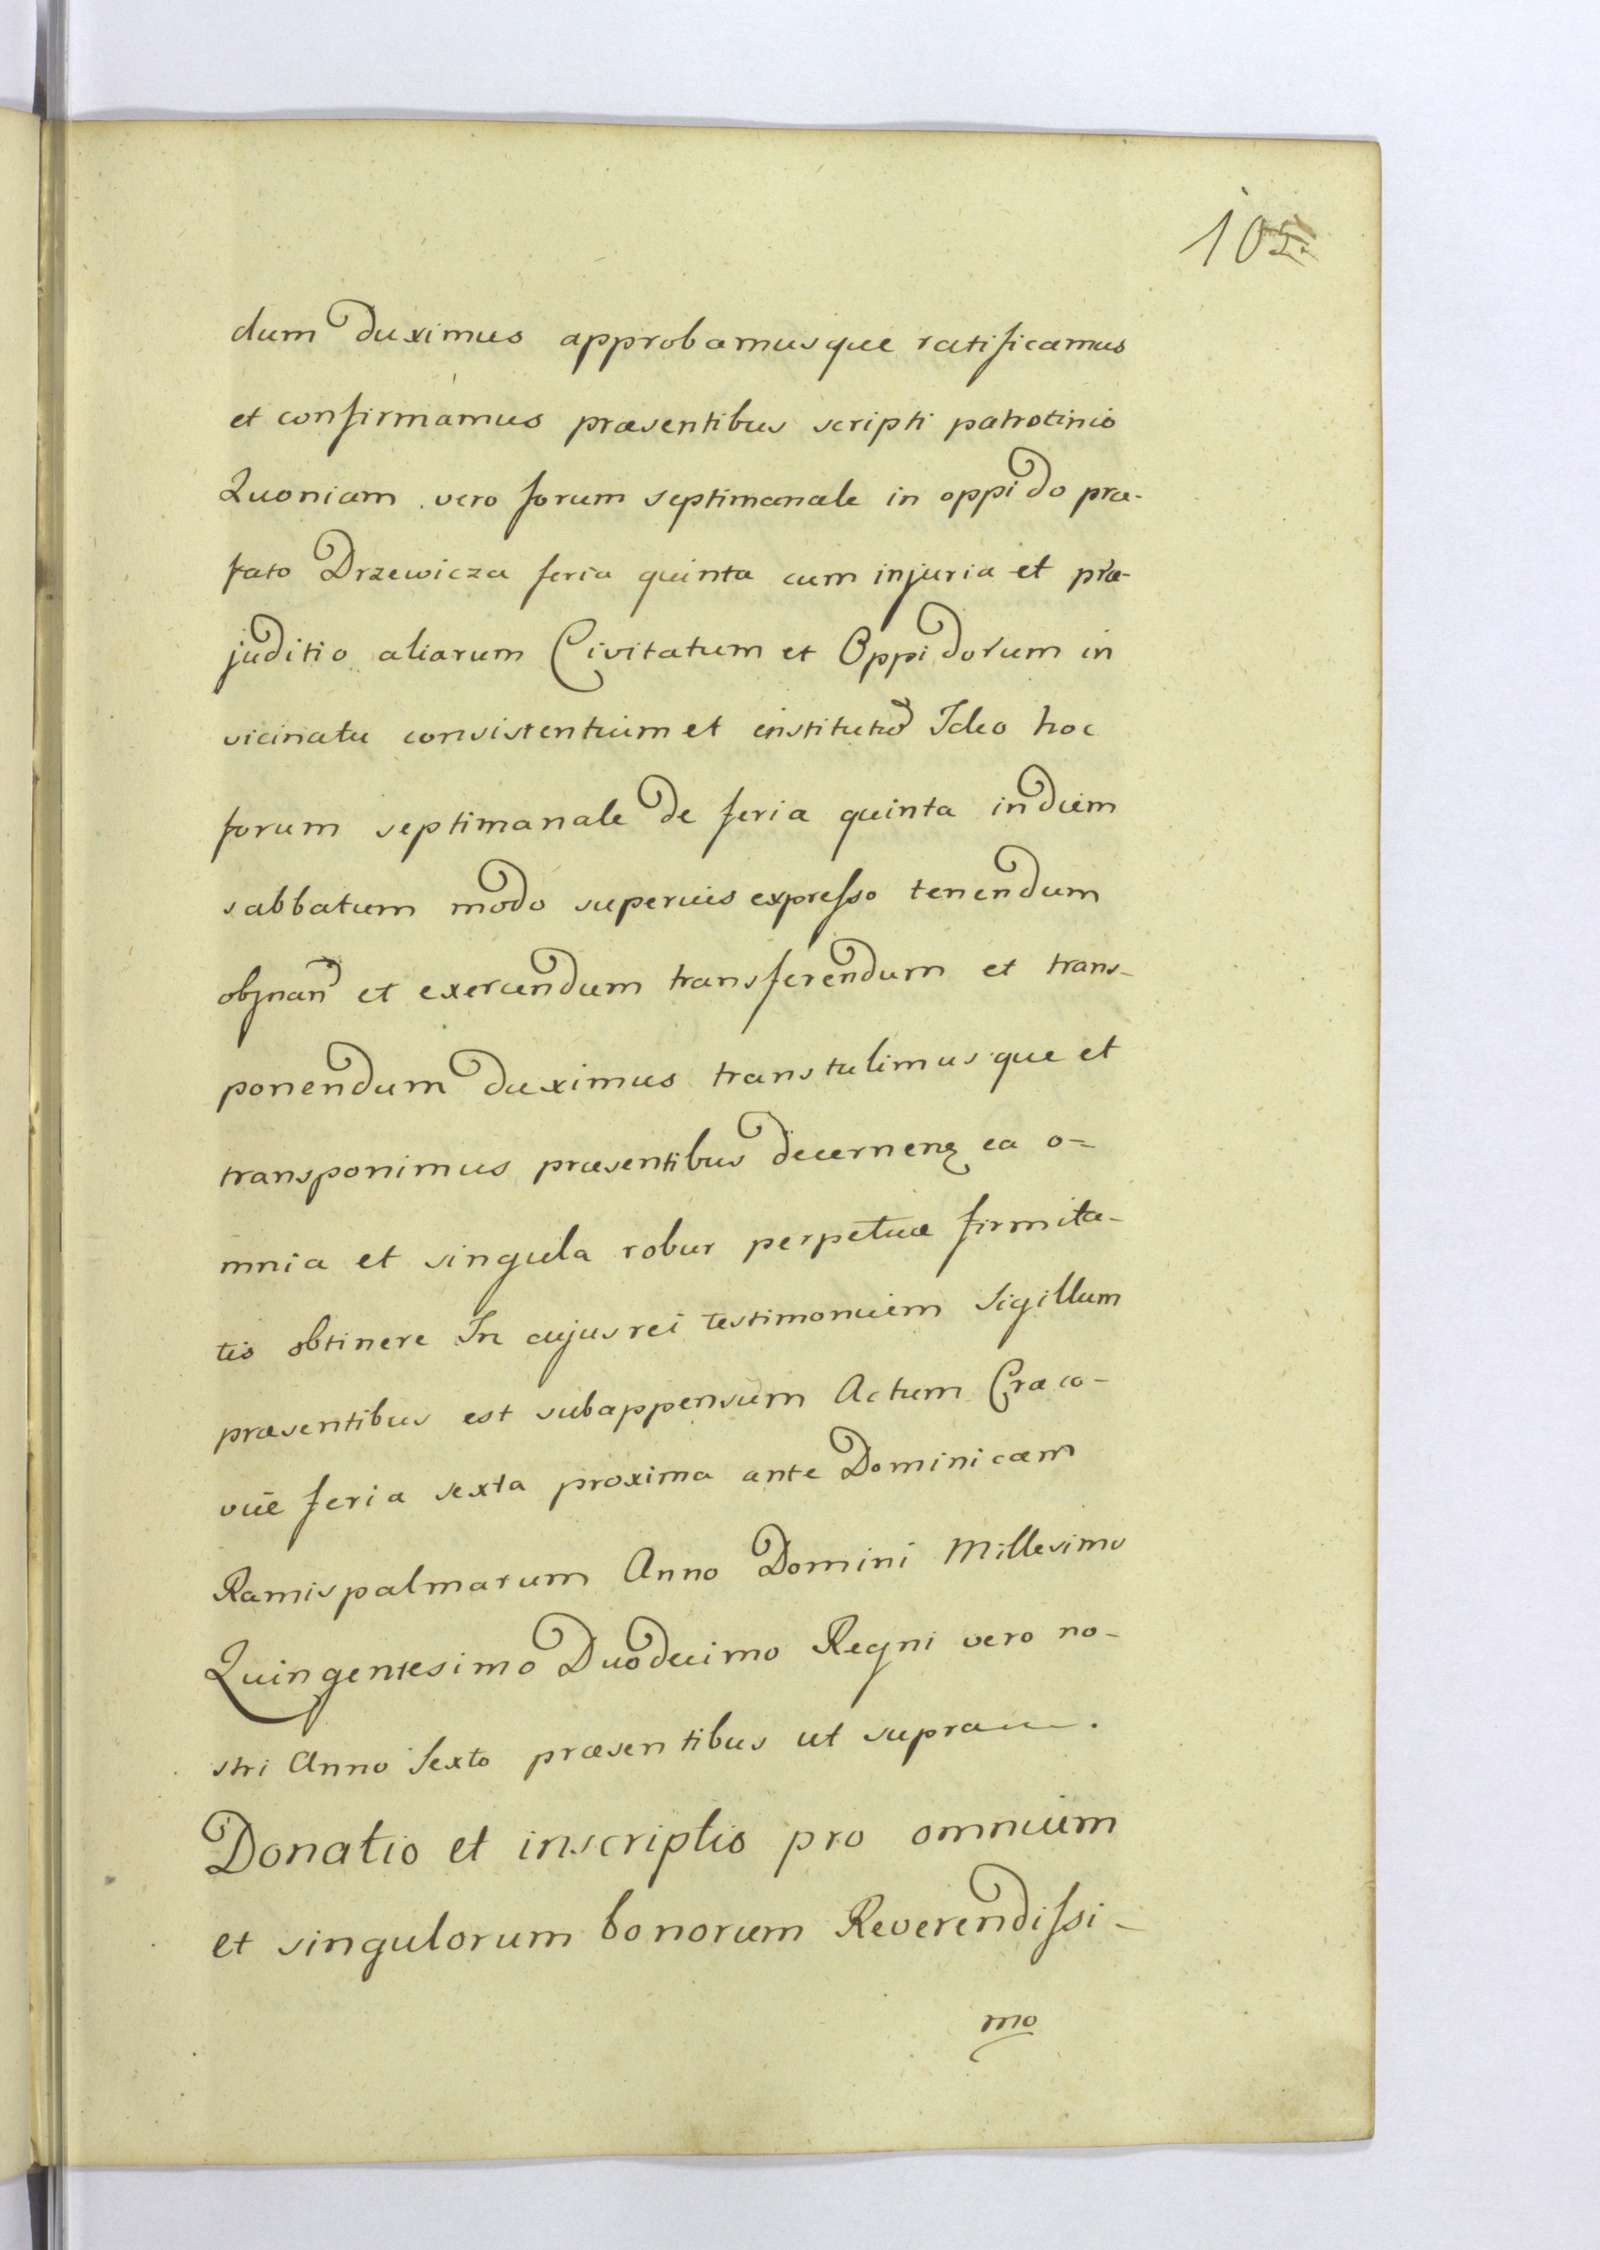 105.
dum duximus approbamusque ratificamus
et confirmamus præsentibus scripti patrocinio
Quoniam vero forum septimanale in oppido præ-
fato Drzewicza feria quinta cum injuria et præ-
juditio aliarum Civitatum et Oppidorum in
vicinatu consistentium et Ideo hoc
forum septimanale de feria quinta in diem
sabbatum modo superius expresso tenendum
et exercendum transferendum et trans-
ponendum duximus transtulimusque et
transponimus præsentibus ea o=
mnia et singula robur perpetuæ firmita-
tis obtinere In cujus rei testimonium Sigillum
præsentibus est subappensum Actum Craco-
viæ feria sexta proxima ante Dominicam
Ramispalmarum Anno Domini Millesimo
Quingentesimo Duodecimo Regni vero no-
stri Anno Sexto præsentibus ut supra.
Donatio et inscriptio pro omnium
et singulorum bonorum Reverendissi-
mo